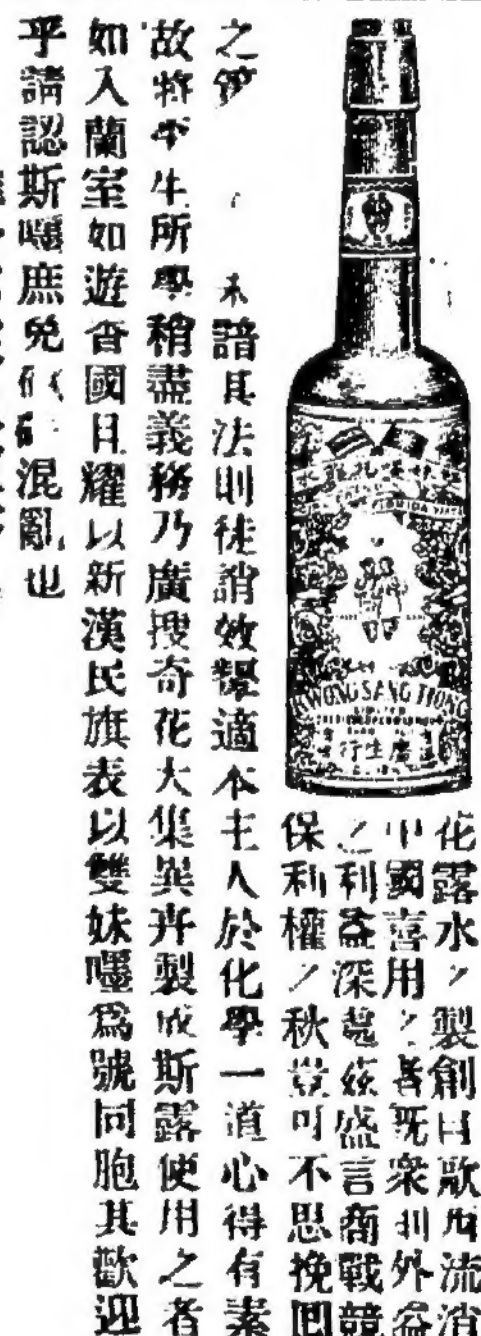 FLORIDA WATER
KWONG SANG HONG
LIMITED
行生廣
花露水之製創自歐西流消
中國喜用之者既衆利外
之利益深茲盛言商戰競
保利權之秋豈可不思挽回
之未諳其法則徒誚效顰適本主人於化學一道心得有素
故將平生所學稍盡義務乃廣搜奇花大集異卉製成斯露使用之者
如入蘭室如遊香國且耀以新漢民旗表以雙妹嚜爲號同胞其歡迎
乎請認斯嚜庶免混亂也